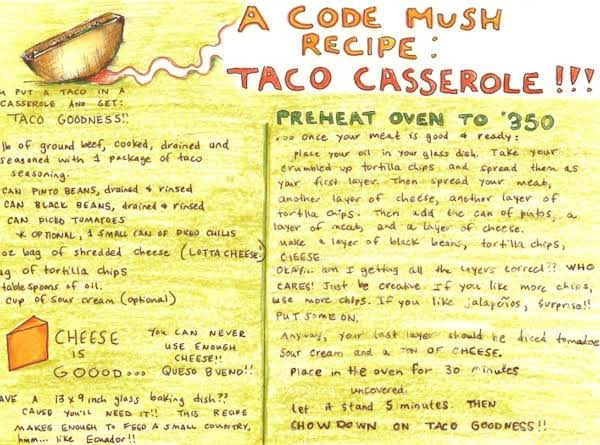 A CODE MUSH
RECIPE:
TACO CASSEROLE!!!
PUT A TACO IN A
CASSEROLE AND GET:
TACO GOODNESS!!
lb of ground beef, cooked, drained and
seasoned with 1 package of taco
seasoning.
CAN PINTO BEANS, drained & rinsed
CAN BLACK BEANS, drained & rinsed
CAN DICED TOMATOES
* OPTIONAL, 1 SMALL CAN OF DICED CHILIS
oz bag of shredded cheese (LOTTA CHEESE)
ag of tortilla chips
tablespoons of oil.
cup of sour cream (optional)
CHEESE
IS
GOOOD...
YOU CAN NEVER
USE ENOUGH
CHEESE!!
QUESO BUENO!!
AVE A 13 x 9 inch glass baking dish??
CAUSE YOU'LL NEED IT!! THIS RECIPE
MAKES ENOUGH TO FEED A SMALL COUNTRY,
hmm... like Ecuador!!
PREHEAT OVEN TO °350
...once your meat is good & ready:
place your oil in your glass dish. Take your
crumbled up tortilla chips and spread them as
your first layer. Then spread your meat,
another layer of cheese, another layer of
tortilla chips. Then add the can of pintos, a
layer of meat, and a layer of cheese.
Make a layer of black beans, tortilla chips,
CHEESE.
OKAY... am I getting all the layers correct?? WHO
CARES! Just be creative. If you like more chips,
use more chips. If you like jalapeños, surprise!!
PUT SOME ON.
Anyway, your last layer should be diced tomatoe
Sour cream and a TON OF CHEESE.
Place in the oven for 30 minutes
uncovered.
Let it stand 5 minutes. THEN
CHOW DOWN ON TACO GOODNESS!!